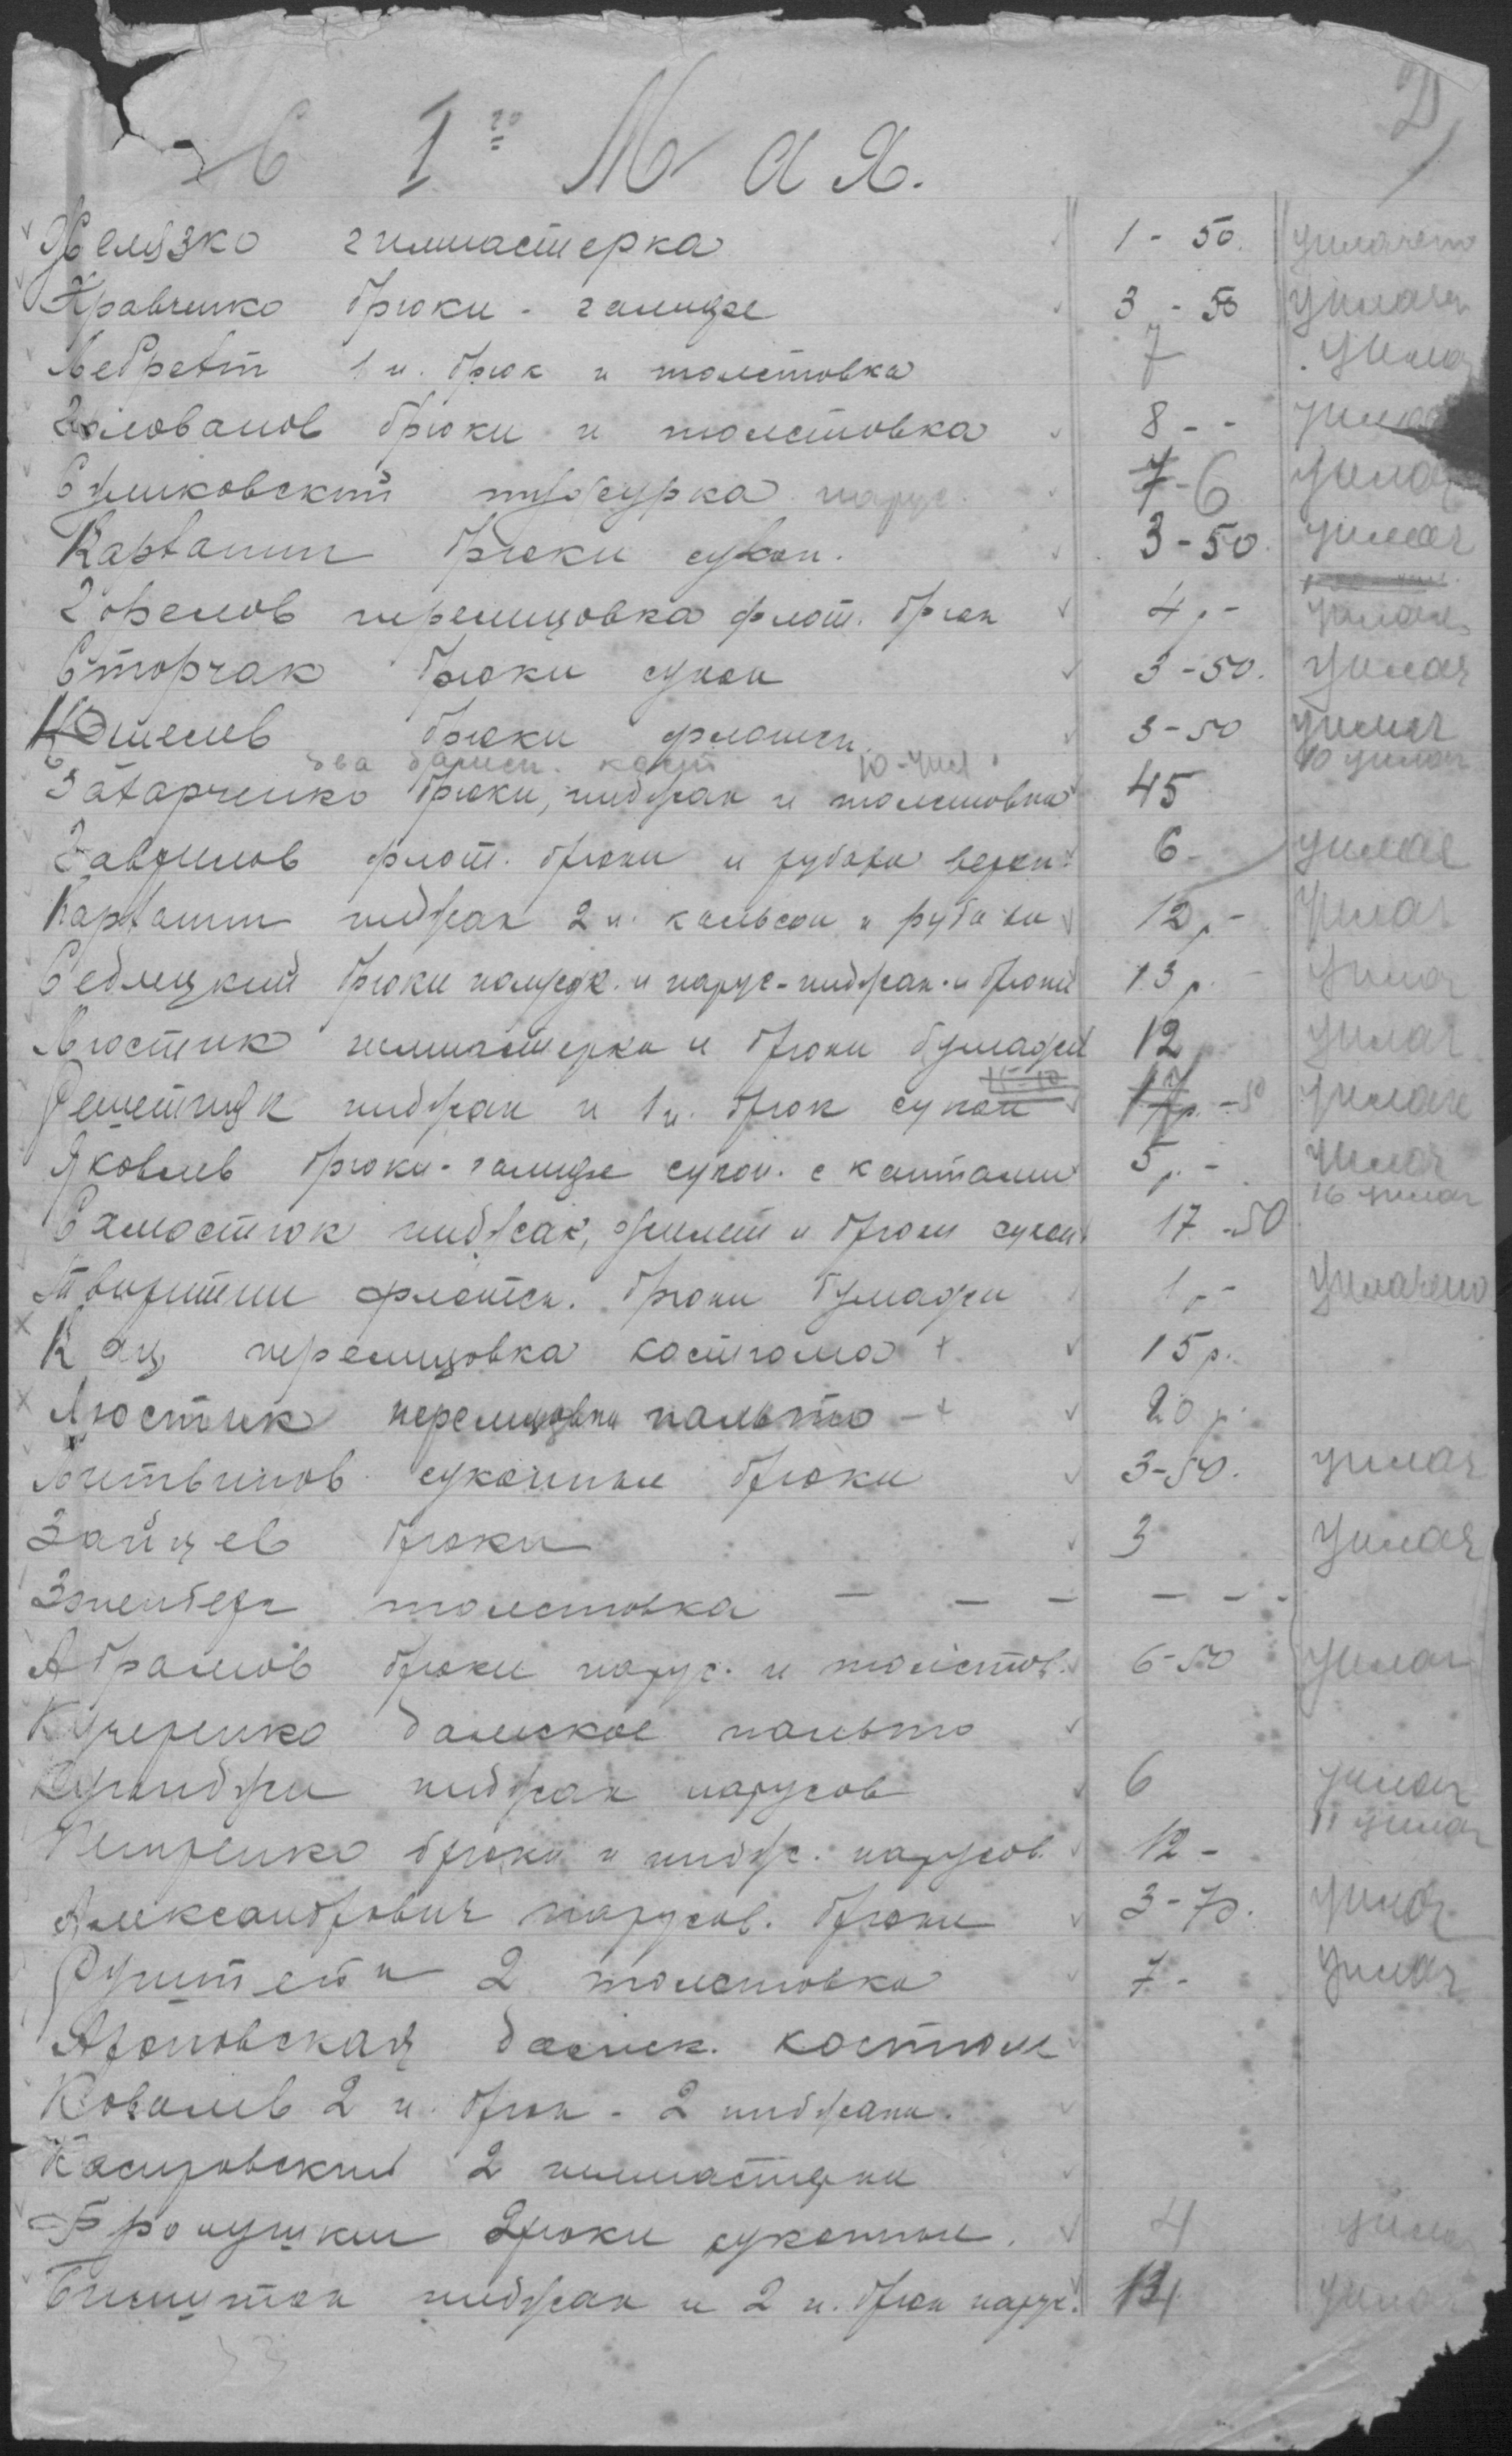 С 1го Мая.
Желязко гимнастерка 1-50. уплачено
Кравченко брюки-галифе 3-50 уплач
Ледрет 1 п. брюк и толстовка 7 упла
Голованов брюки и толстовка 8-- упла
Сумковский тужурка парус. 7-6 уплач
Картанин брюки сукон. 3-50. уплач
Гобелов перелицовка флот. брюк 4р- уплач
Сторчак брюки сукон 3-50. уплач
Кошелев брюки флотск. 3-50 уплач
два дамск. кост 10-упл 10 уплач
Затарченко брюки, пиджак и толстовка 45
Гаврилов флот. брюки и рубаха верхн. 6- уплач
Картанин пиджак 2 п. кальсон и рубахи 12р- уплач
Седлецкий брюки полусук. и парус-пиджак и брюки 13р. уплач
Люстик гимнастерка и брюки бумажн 12 уплач
Решетняк пиджак и 1 п. брюк сукон 17р.-50 уплач
Яковлев брюки-галифе сукон. с кантами 5р- уплач
16 уплач
Сахмостюк пиджак, жилет и брюки сукон 17-50
Творитин флотск. брюки бумажн 1р- уплачено
Кац перелицовка костюма + 15р.
Люстик перелицовка пальто -+ 20р.
Литвинов суконные брюки 3-50. уплач
Зайцев брюки 3 уплач
Эпенберг толстовка — — — — — -
Абрамов брюки парус. и толстов. 6-50 уплач
Кучеренко дамское пальто
Куюнджи пиджак парусов 6 уплач
11 уплач
Петренко брюки и пидж. парусов. 12-
Александрович парусов. брюки 3-70. уплач
Рунштейн 2 толстовка 7- уплач
Ароновская дамск. костюм
Ковалев 2 п. брюк - 2 пиджака.
Касировский 2 гимнастерки
Бронушкин брюки суконные. 4 уплач
пиджак и 2 п. брюк парус. 13 уплач